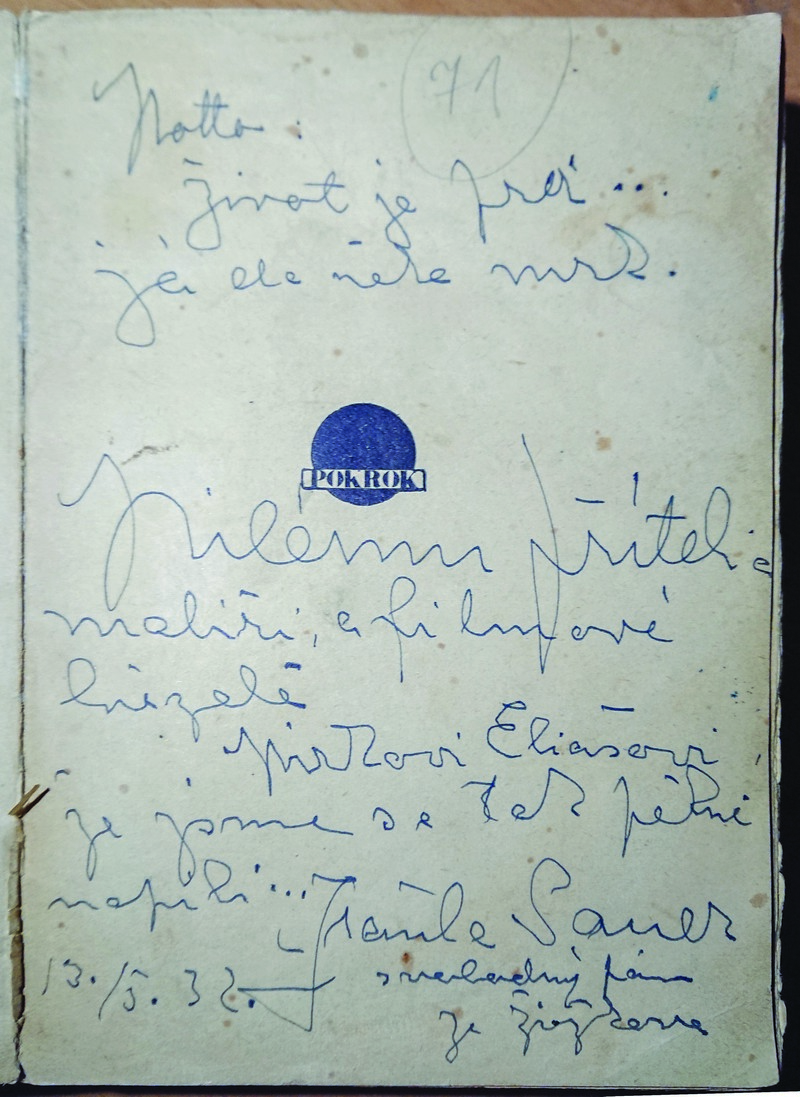 71
Motto:
život je prd...
já de něho mrk.
POKROK
Milému příteli a
malíři, a filmové
hvězdě
Mirkovi Eliášovi,
že jsme se tak pěkně
napili...
Franta Sauer
13./5. 32.
svobodný pán
ze Žižkova